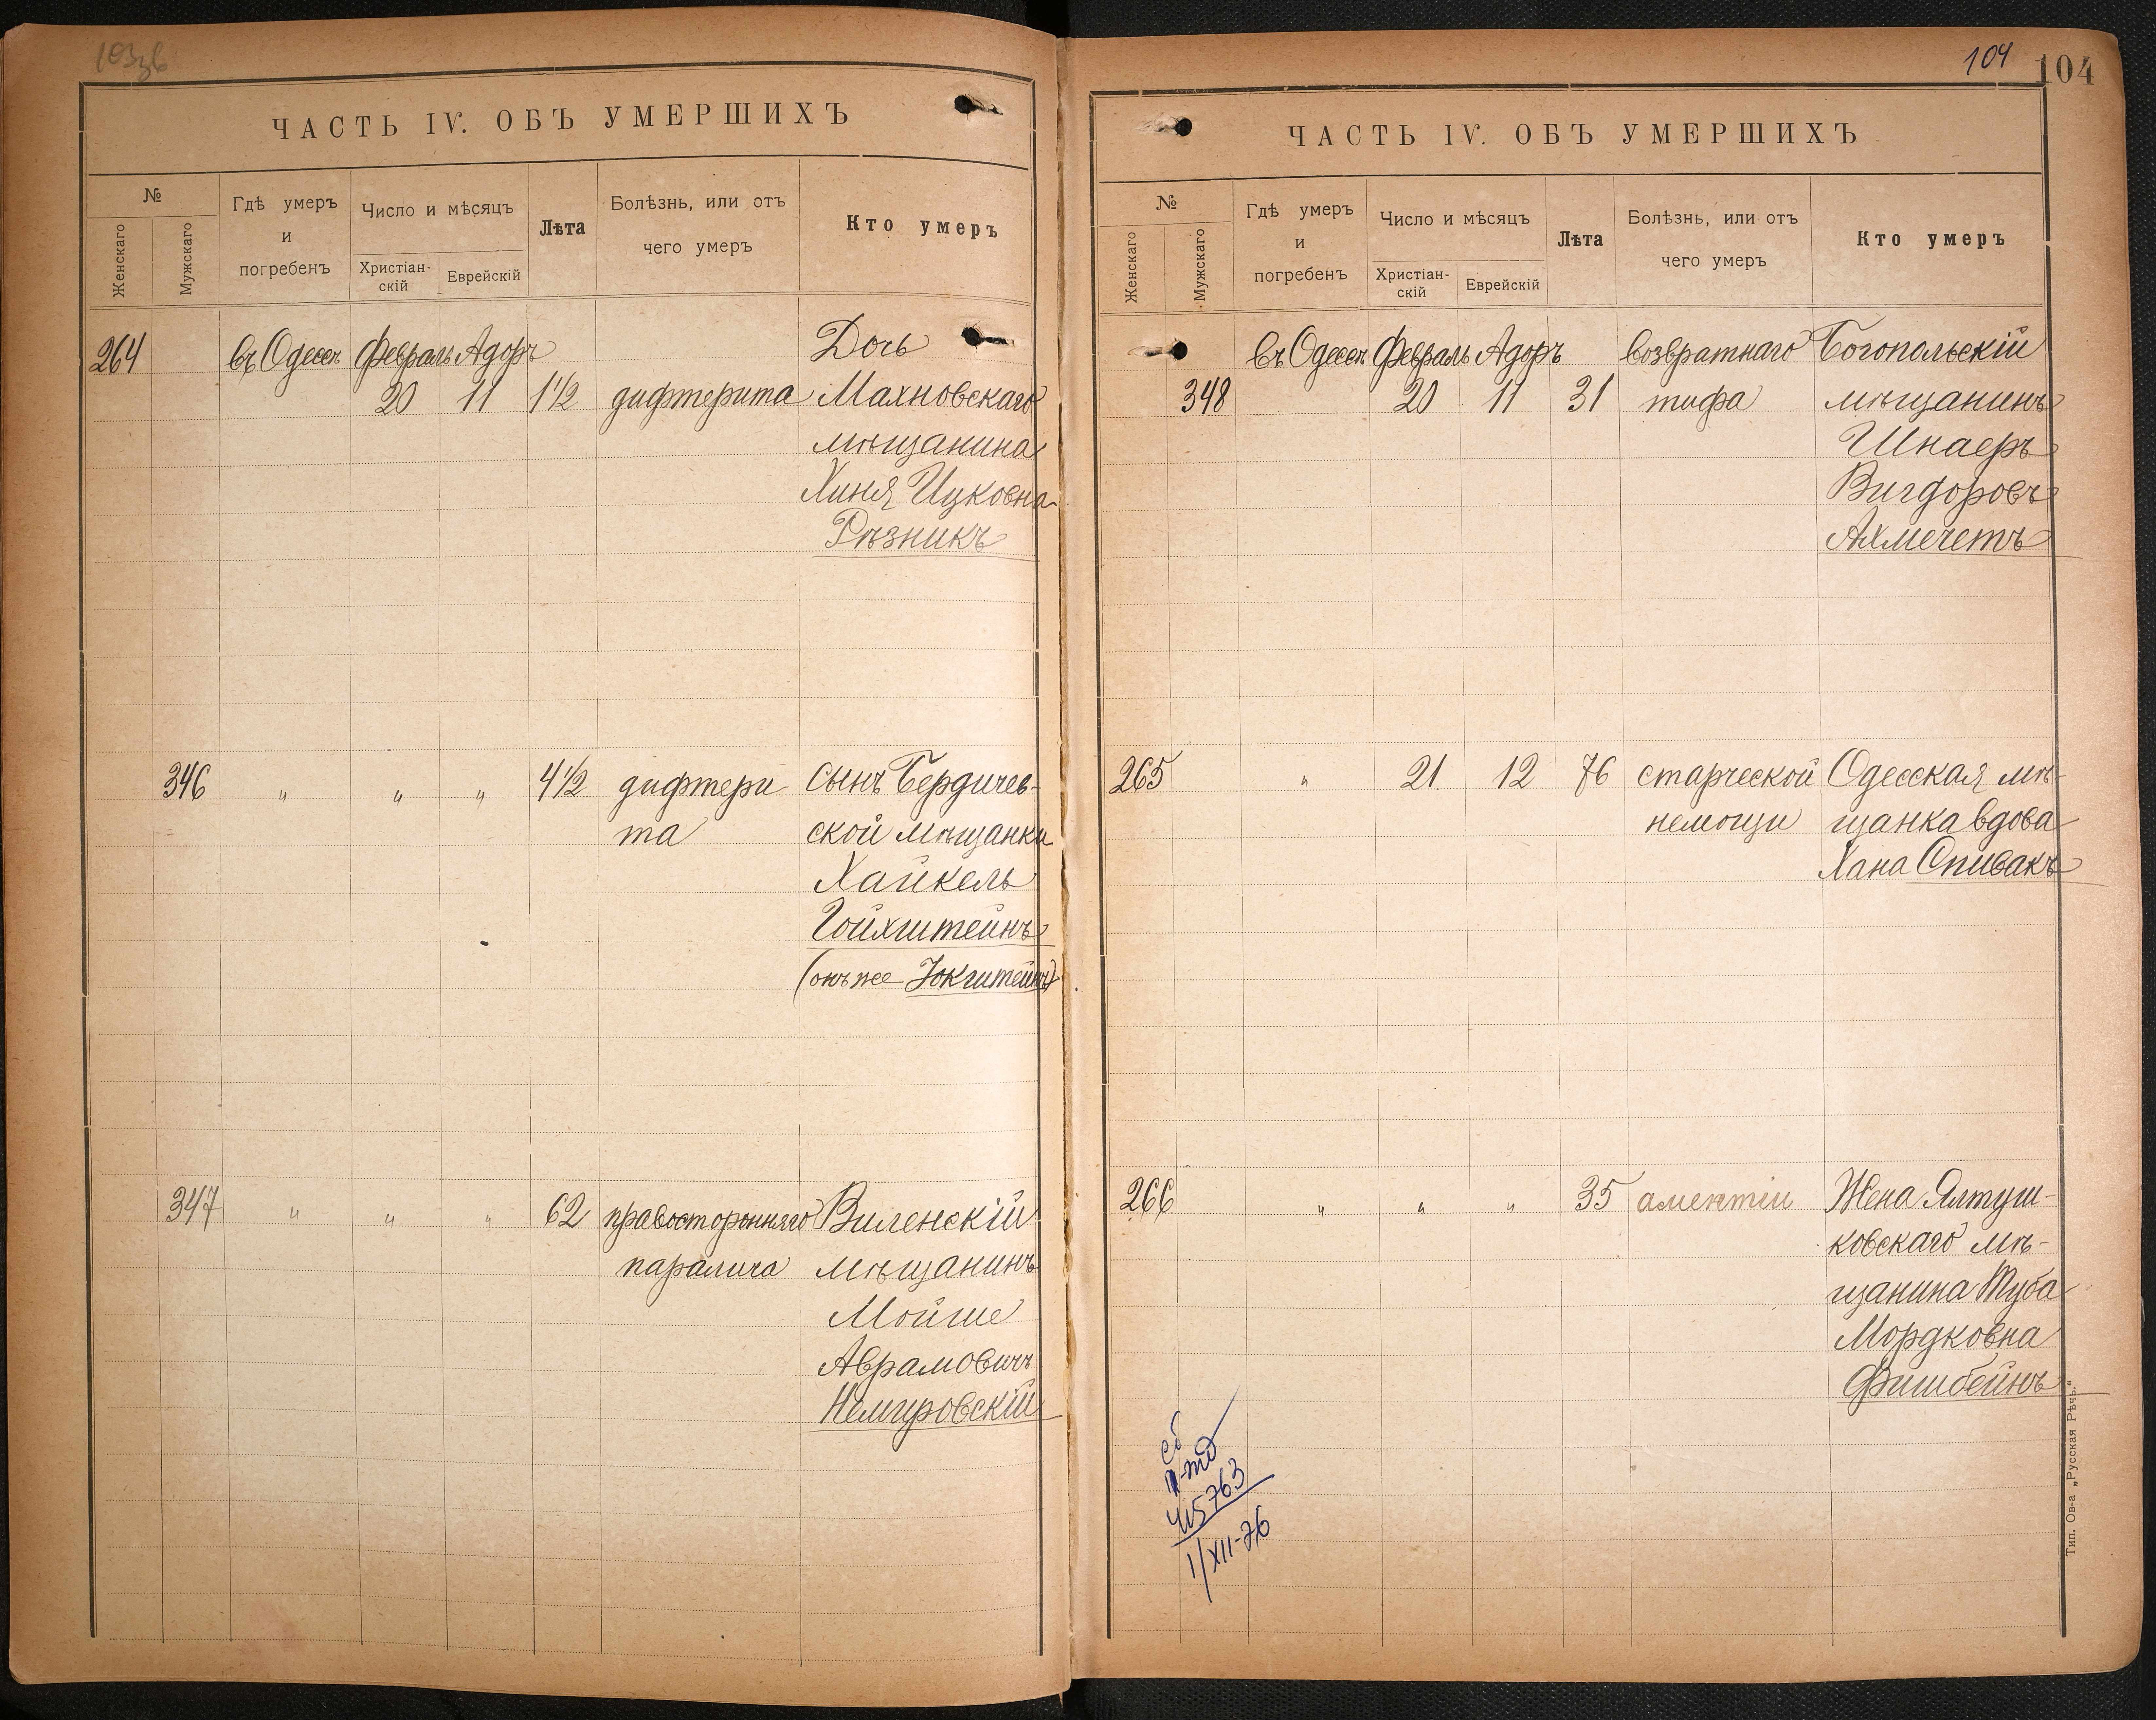 ЧАСТЬ IV. ОБЪ УМЕРШИХЪ
№
Женскаго
Мужскаго
Гдѣ умеръ
и
погребенъ
Число и мѣсяцъ
Христіан-
скій
Еврейскій
Лѣта
Болѣзнь, или отъ
чего умеръ
Кто умеръ
264 въ Одессѣ Февраль Адоръ Дочь
20 11 1½ дифтерита Махновскаго
мѣщанина
Хиня Ицковна
Рѣзникъ
346 " " " 4½ дифтери сынъ Бердичев-
та ской мѣщанки
Хайкель
Гойхштейнъ
(онъ же Зокштейнъ)
347 " " " 62 правосторонняго Виленскій
паралича мѣщанинъ
Мойше
Аврамовичъ
Немировскій
104 104
ЧАСТЬ IV. ОБЪ УМЕРШИХЪ
№
Женскаго
Мужскаго
Гдѣ умеръ
и
погребенъ
Число и мѣсяцъ
Христіан-
скій
Еврейскій
Лѣта
Болѣзнь, или отъ
чего умеръ
Кто умеръ
въ Одессѣ Февраль Адоръ возвратнаго Богопольскій
348 20 11 31 тифа мѣщанинъ
Шнаеръ
Вигдоровъ
Ахмечетъ
265 " 21 12 76 старческой Одесская мѣ-
немощи щанка вдова
Хана Спивакъ
266 " " " 35 аментіи Жена Ялтуш-
ковскаго мѣ-
щанина Туба
Мордковна
Фишбейнъ
1/XII-76
Тип. Ов-а „Русская Рѣчь“